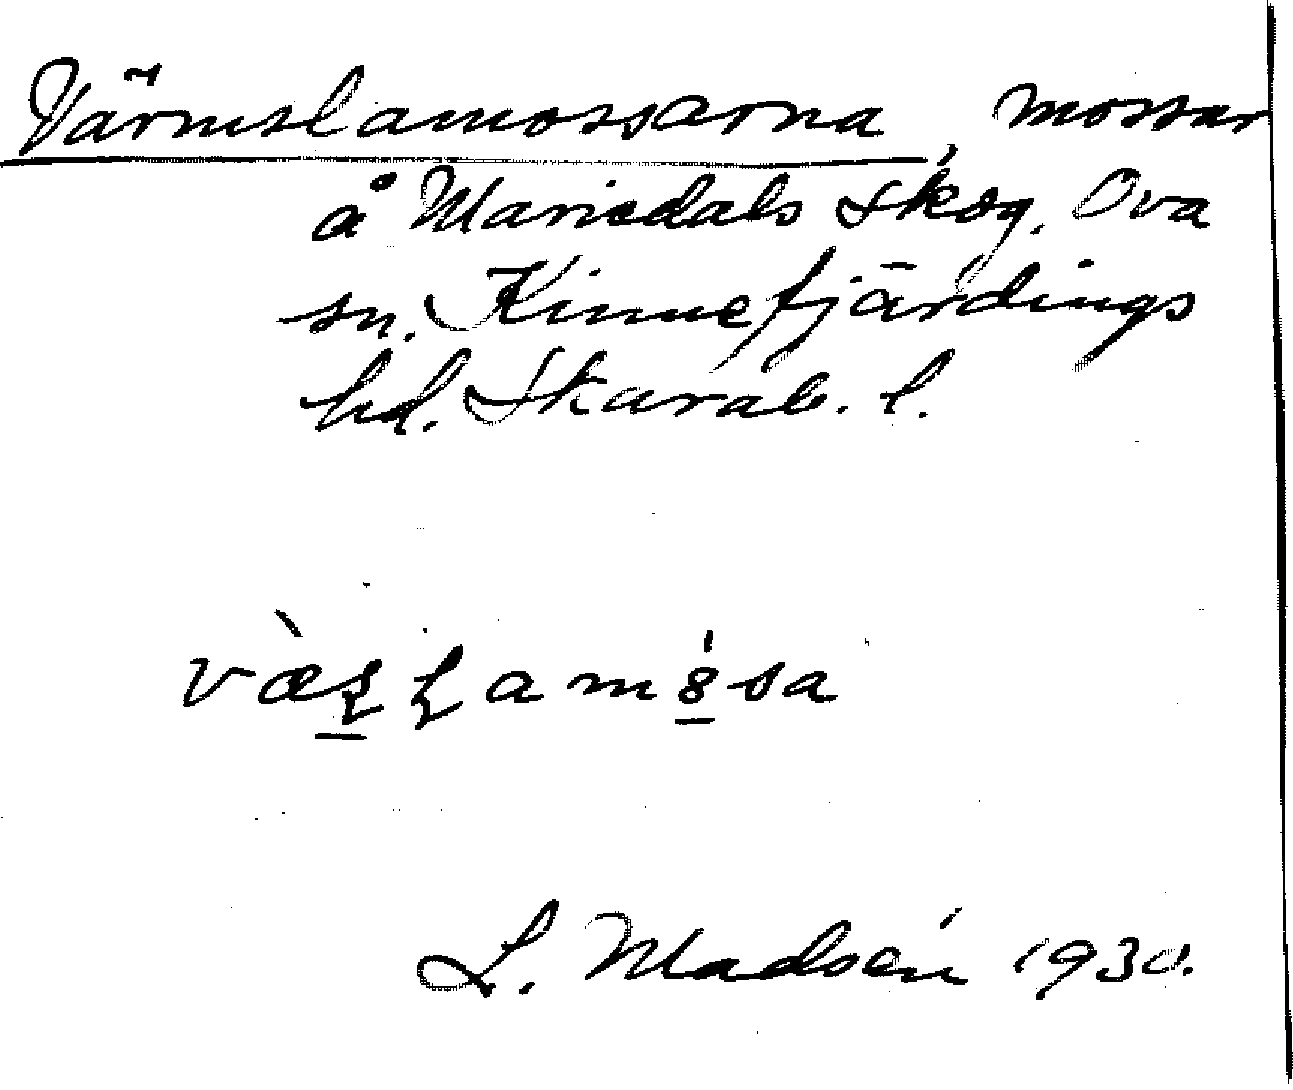 Värmslamossarna, mossar
å Mariedals skog. Ova
sn. Kinnefjärdings
hd. Skarab. l.
L. Madsén 1930.